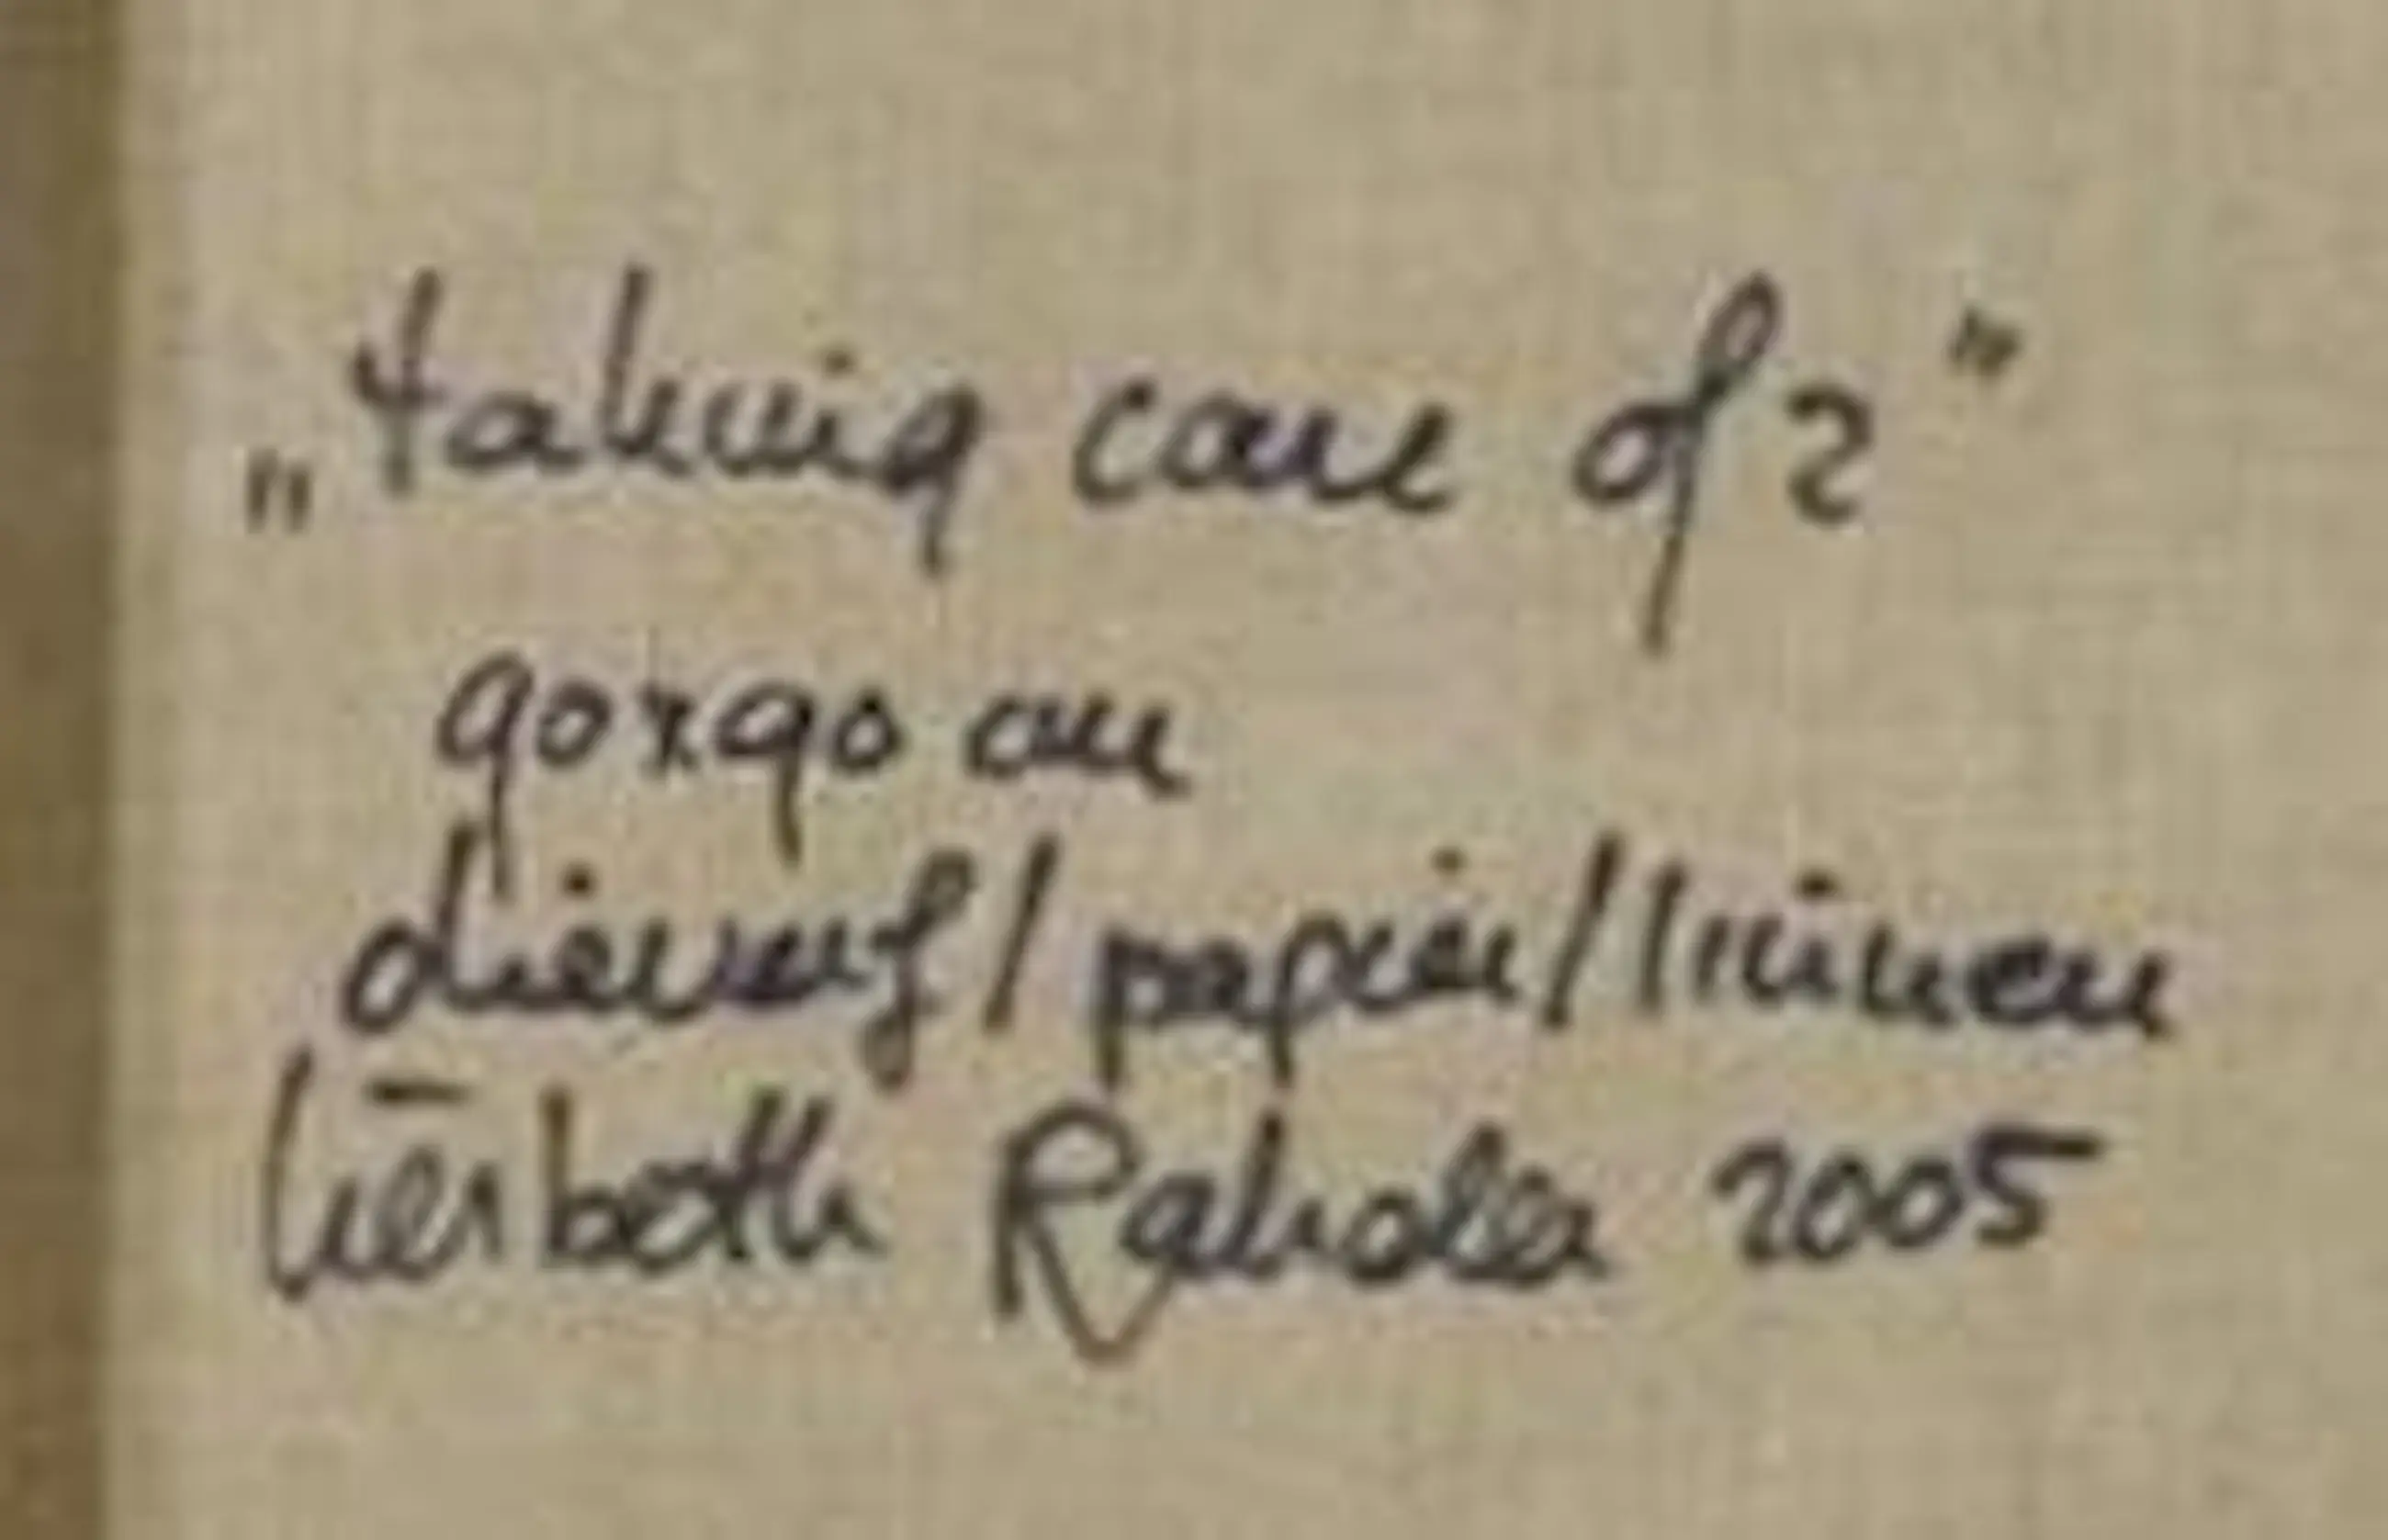 „taking care of 2"
90x90 cm
div. verf / papier / linnen
Liesbeth 2005